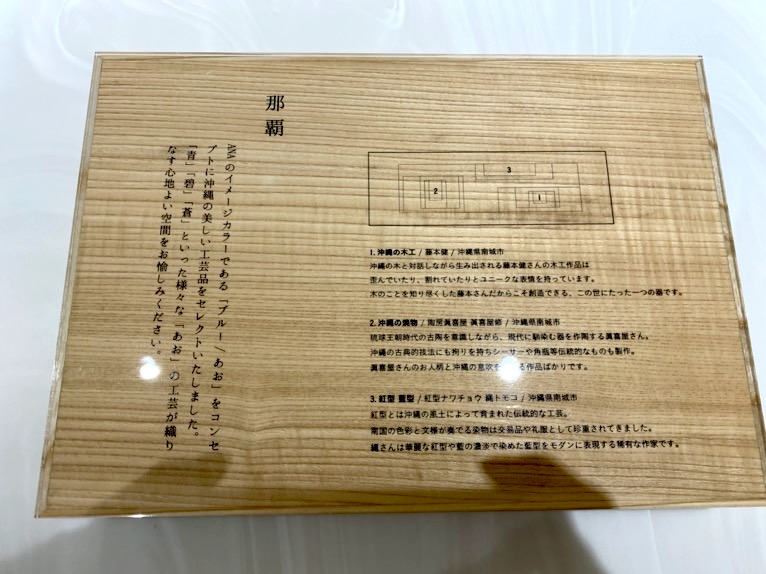 那覇
ANAのイメージカラーである「ブルー／あお」をコンセ
プトに沖縄の美しい工芸品をセレクトいたしました。
「青」「碧」「蒼」といった様々な「あお」の工芸が織り
なす心地よい空間をお愉しみください。
3
2
1
1. 沖縄の木工 / 藤本健 / 沖縄県南城市
沖縄の木と対話しながら生み出される藤本健さんの木工作品は
歪んでいたり、割れていたりとユニークな表情を持っています。
木のことを知り尽くした藤本さんだからこそ創造できる、この世にたった一つの器です。
2. 沖縄の焼物 / 陶房眞喜屋 眞喜屋修 / 沖縄県南城市
琉球王朝時代の古陶を意識しながら、現代に馴染む器を作陶する眞喜屋さん。
沖縄の古典的技法にも拘りを持ちシーサーや角瓶等伝統的なものも製作。
眞喜屋さんのお人柄と沖縄の息吹を る作品ばかりです。
3. 紅型 藍型 / 紅型ナワチョウ 縄トモコ / 沖縄県南城市
紅型とは沖縄の風土によって育まれた伝統的な工芸。
南国の色彩と文様が奏でる染物は交易品や礼服として珍重されてきました。
縄さんは華麗な紅型や藍の濃淡で染めた藍型をモダンに表現する稀有な作家です。